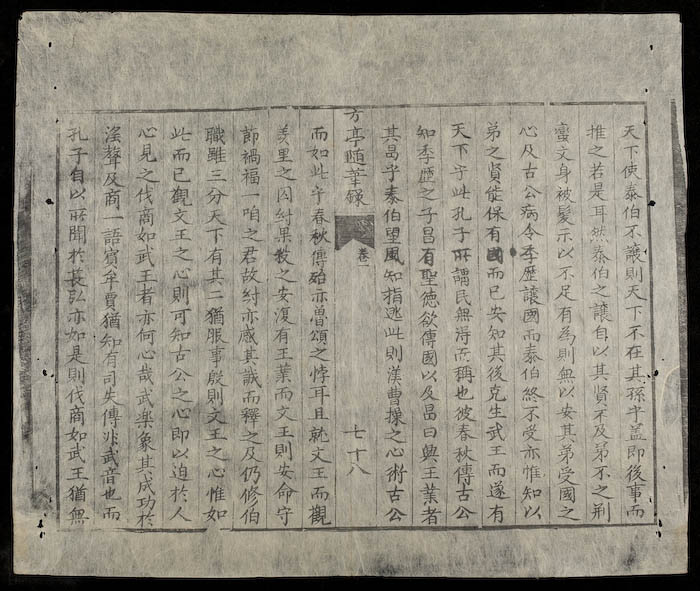 天下使泰伯不讓則天下不在其孫乎盖即後事而
推之若是耳然泰伯之讓自以其賢不及弟不之荆
蠻文身被髮示以不足有為則無以安其弟受國之
心及古公病令季歷讓國而泰伯終不受亦惟知以
弟之賢能保有國而已安知其後克生武王而遂有
天下乎此孔子所謂民無得而稱也彼春秋傳古公
知季歷之子昌有聖德欲傳國以及昌曰與王業者
其昌乎泰伯望風知指逃此則漢曹操之心術古公
方亭隨筆錄
卷一
七十八
而如此乎春秋傳殆亦魯頌之悖耳且就文王而觀
羑里之囚紂果殺之安復有王業而文王則安命守
節禍福一咱之君故紂亦感其誠而釋之及仍修伯
職雖三分天下有其二猶服事殷則文王之心惟如
此而已觀文王之心則可知古公之心即以迫於人
心見之伐商如武王者亦何心哉武樂象其成功於
淫聲及商一語賓牟賈猶知有司失傳非武音也而
孔子自以所聞於萇弘亦如是則伐商如武王猶無